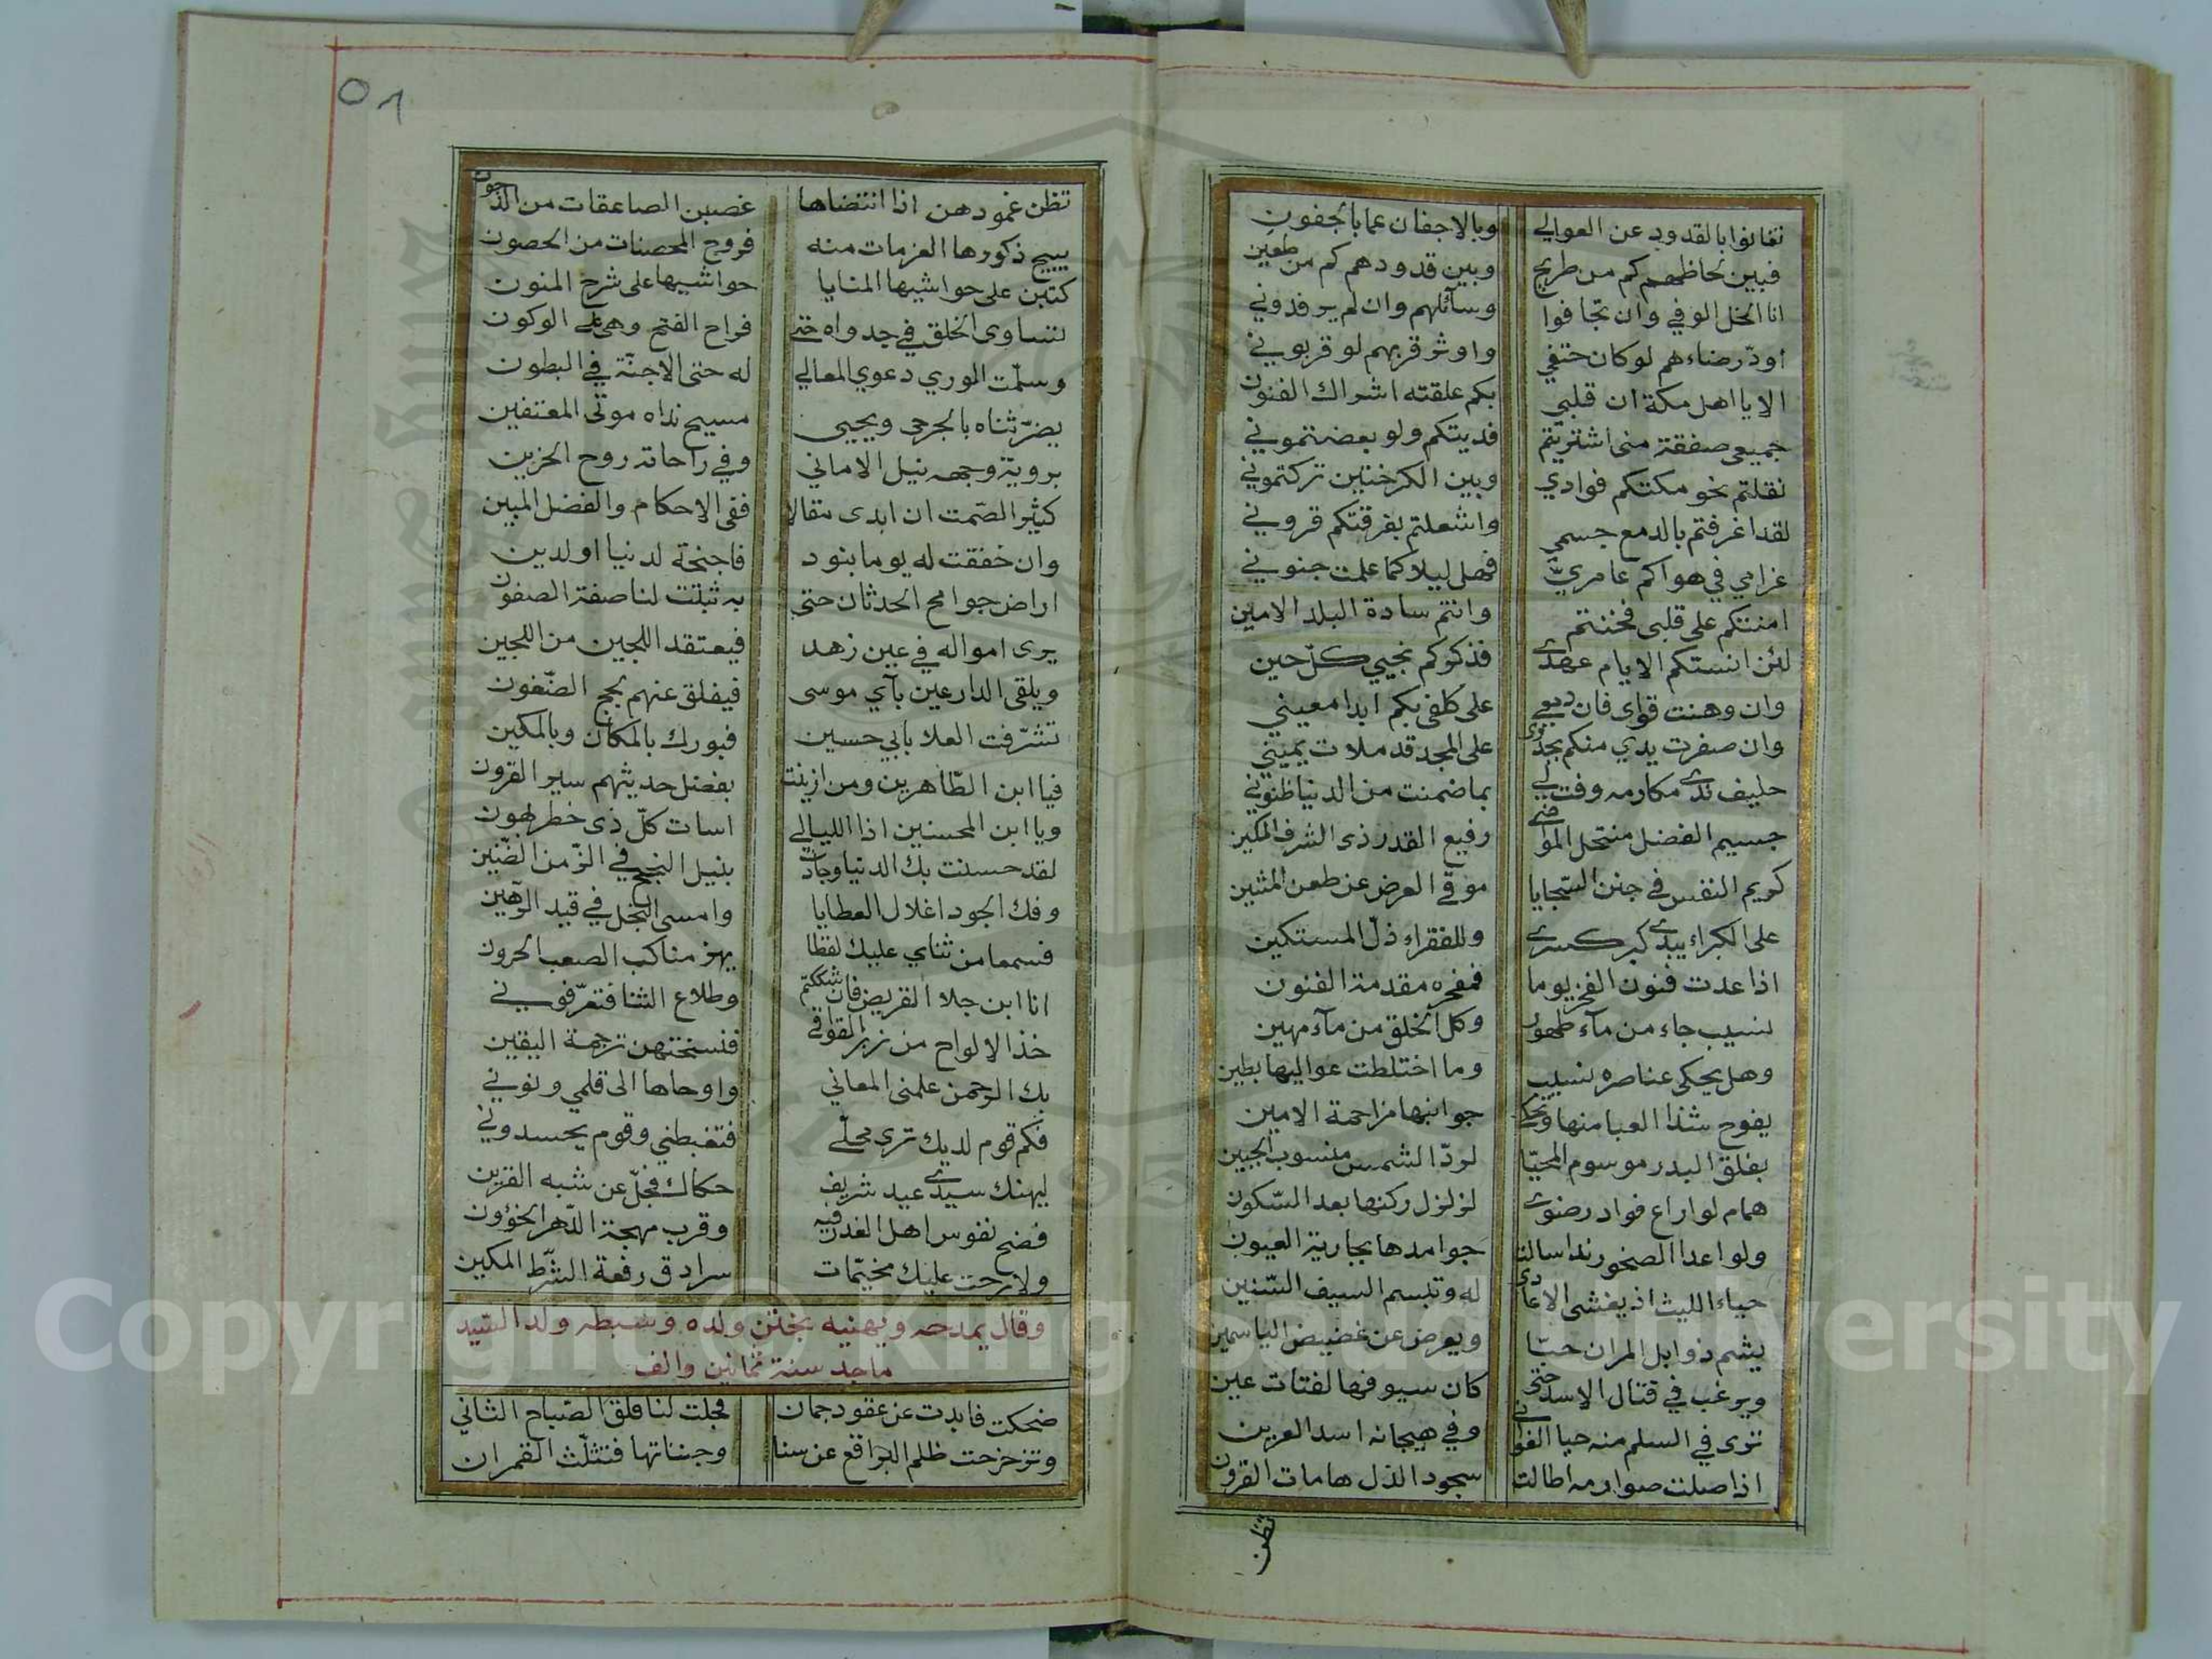 تغانوا بالقدود عن العوالي وبالاجفان عما بالجفون
فبين لحاظهم كم من طريح وبين قدودهم كم من طعين
انا الخل الوفي وان تجافوا وسائلهم وان لم يرفدوني
اودّ رضاءهم لو كان حتفي واوثر قربهم لو قربوني
الا يا اهل مكة ان قلبي بكم علقته اشراك الفنون
جميعي صفقة مني اشتريتم فديتكم ولو بعضتموني
نقلتم نحو مكتكم فوادي وبين الكرختين تركتموني
لقد اغرقتم بالدمع جسمي واشعلتم بفرقتكم قروني
غرامي في هواكم عامريّ فهل ليلا كما علمت جنوني
امنتكم على قلبي فخنتم وانتم سادة البلد الامين
لئن انستكم الايام عهدي فذكركم نجيي كلّ حين
وان وهنت قواي فان دمعي على كلفي بكم ابدا معيني
وان صفرت يدي منكم بجدوى على المجد قد ملات يميني
حليف ندى مكارمه وفت لي بما ضمنت من الدنيا ظنوني
جسيم الفضل منتحل المواضي رفيع القدر ذي الشرف المكين
كريم النفس في جنن السّجايا موقّي العرض عن طعن المشين
على الكبراء يبدي كبر كسرى وللفقراء ذلّ المستكين
اذا عدت فنون الفخر يوما فمفخره مقدمة الفنون
نسيب جاء من مآء طهور وكل الخلق من مآء مهين
وهل يحكى عناصره نسيب وما اختلطت عواليها بطين
يفوح شذا العبا منها وتحكي جوانبها مزاحمة الامين
بفلق البدر موسوم المحيّا لردّ الشمس منسوب الجبين
همام لو اراع فواد رضوى لزلزل ركنها بعد السّكون
ولو اعدا الصخور نداه سالت جوامدها بجارية العيون
حياء الليث اذ يغشى الاعادي له وتبسم السيف السّنين
يشم ذوابل المران حبّا ويعرض عن غضيض الياسمين
ويرغب في قتال الاسد حتى كان سيوفها لفتات عين
ترى في السلم منه حيا الغواني وفي هيجانه اسد العرين
اذا صلت صوارمه اطالت سجود الذل هامات القرون
تظن
٥٨
تظن غمودهن اذا انتضاها غصبن الصاعقات من الدجون
يبيح ذكورها العزمات منه فروج المحصنات من الحصون
كتبن على حواشيها المنايا حواشيها على شرح المنون
تساوى الخلق في جدواه حتى فراح الفتح وهي على الوكون
وسلّمت الورى دعوى المعالي له حتى الاجنّة في البطون
يضرّ ثناه بالجرحى ويحيى مسيح نداه موتى المعتفين
بروية وجهه نيل الاماني وفي راحاته روح الحزين
كثير الصّمت ان ابدى مقالا ففي الاحكام والفضل المبين
وان خفقت له يوما بنود فاجنحة لدنيا او لدين
اراض جوامح الحدثان حتى به ثبتت لنا صفة الصفون
يرى امواله في عين زهد فيعتقد اللجين من اللجين
ويلقى الدارعين بآي موسى فيفلق عنهم لجج الضّغون
تشرّفت العلا بابي حسين فبورك بالمكان وبالمكين
فيا ابن الطّاهرين ومن ازينت بفضل حديثهم سير القرون
ويا ابن المحسنين اذا الليالي اسات كلّ ذي خطر لهون
لقد حسنت بك الدنيا وجادت بنيل النجح في الزّمن الضّنين
وفك الجود اغلال العطايا وامسى البخل في قيد الرّهين
فسمعا من ثناي عليك لفظا يهز مناكب الصعب الحرون
انا ابن جلا القريض فان شككتم وطلاع الثنا فتعرّفوني
خذ الالواح من زبر القوافي فنسختهن ترجمة اليقين
بك الرحمن علمني المعاني واوحاها الى قلمي ونوني
فكم قوم لديك ترى محلّي فتغبطني وقوم يحسدوني
ليهنك سيدي عيد شريف حكاك فجلّ عن شبه القرين
فضح نفوس اهل الغدر فيه وقرب مهجة الدّهر الخؤون
ولا برحت عليك مخيّمات سرادق رفعة الشّرط المكين
وقال يمدحه ويهنيه بختن ولده وسبطه ولد السّيد
ماجد سنة ثمانين والف
ضحكت فابدت عن عقود جمان فجلت لنا فلق الصّباح الثاني
وتزحزحت ظلم البراقع عن سنا وجناتها فتثلّث القمران
Copyright © King Saud University